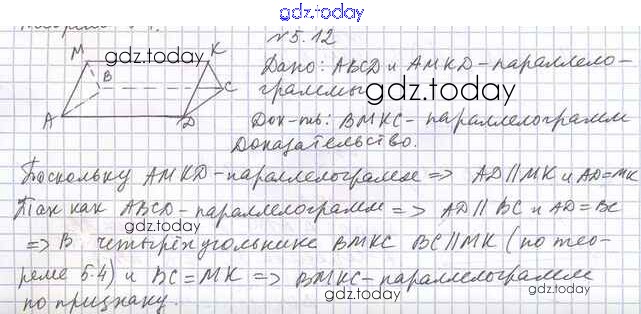 gdz.today
N 5.12
M K
gdz.today
B C
A D
Дано: ABCD и AMKD - параллело-
граммы
gdz.today
Док-ть: BMKC - параллелограмм
Доказательство.
Поскольку AMKD - параллелограмм => AD || MK и AD = MK
Так как ABCD - параллелограмм => AD || BC и AD = BC
gdz.today
=> В четырёхугольнике BMKC BC || MK (по тео-
реме 5.4) и BC = MK => BMKC - параллелограмм
gdz.today
по признаку.
gdz.today